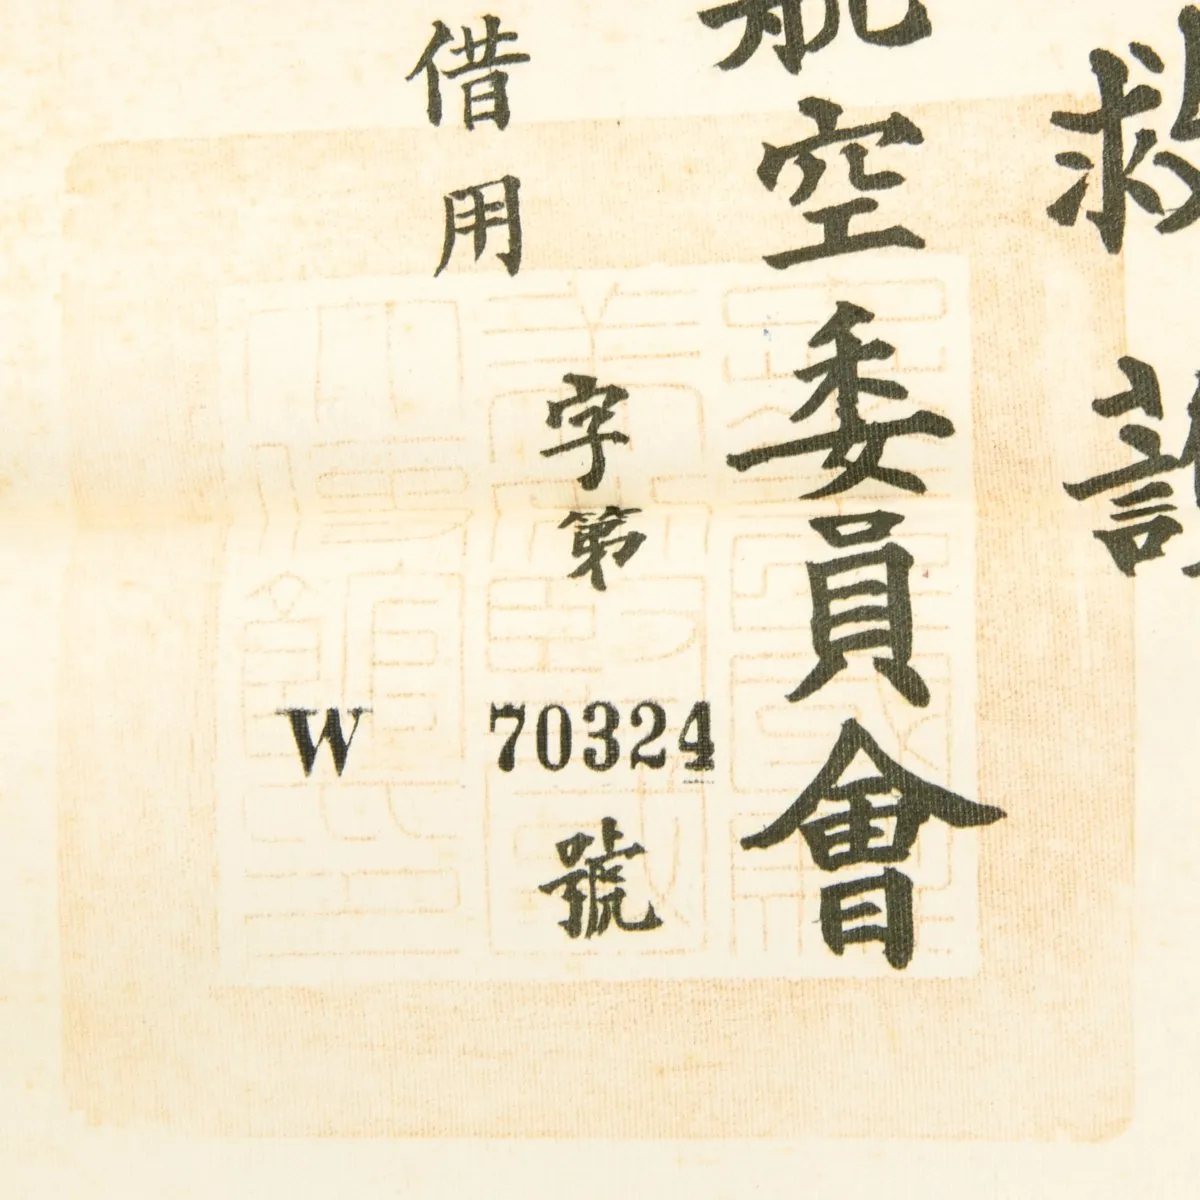 救護
航空委員會
字第 70324 號
借用
W